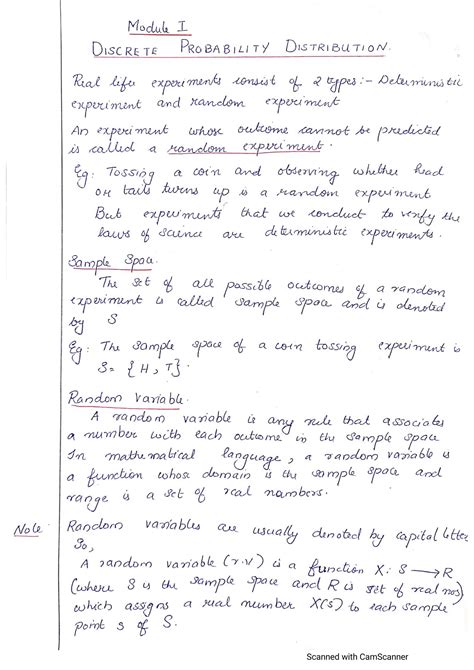 Module I
DISCRETE PROBABILITY DISTRIBUTION.
Real life experiments consist of 2 types:- Deterministic
experiment and random experiment
An experiment whose outcome cannot be predicted
is called a random experiment.
Eg: Tossing a coin and observing whether head
or tails turns up is a random experiment
But experiments that we conduct to verify the
laws of science are deterministic experiments.
Sample Space.
The set of all possible outcomes of a random
experiment is called sample space and is denoted
by S
Eg: The sample space of a coin tossing experiment is
S = {H, T}.
Random Variable.
A random variable is any rule that associates
a number with each outcome in the sample space
In mathematical language, a random variable is
a function whose domain is the sample space and
range is a set of real numbers.
Note: Random variables are usually denoted by capital letter
So,
A random variable (r.v) is a function X: S → R
(where S is the sample space and R is set of real nos)
which assigns a real number X(s) to each sample
point s of S.
Scanned with CamScanner